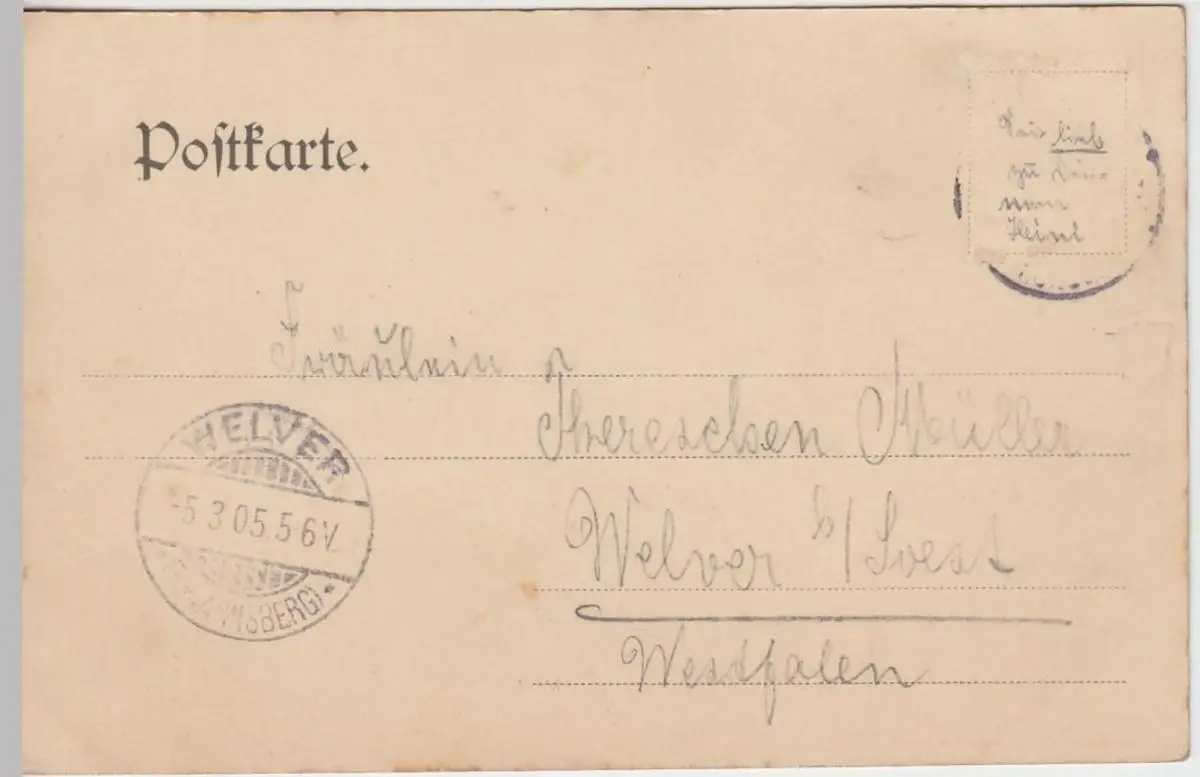 Postkarte.
lieb
zu
Fräulein
Thereschen Müller
Welver b/Soest
Westfalen
WELVER
-5 3 05.5-6V.
(ARNSBERG)*